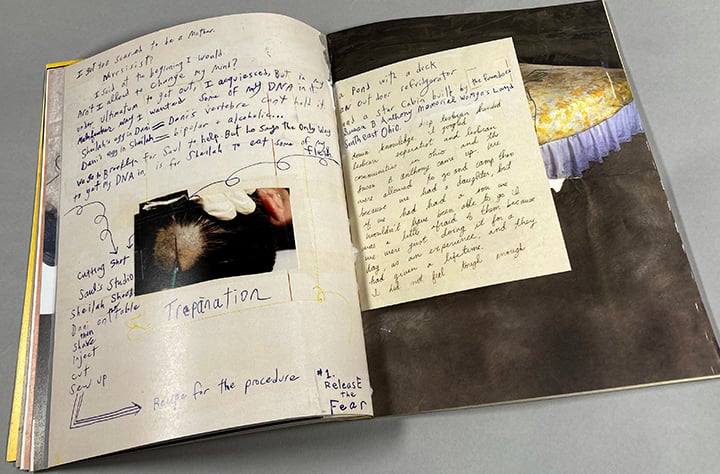 I got too scared to be a Mother.
Narssisist?
I said at the beginning I would.
Arnt I allowed to change my mind?
under Ultimatum to get out, I acquiessed, But in my
way I wanted some of my DNA in it
Sheilah's egg in Dani = Dani's vertebre can't hold it.
Dani's egg in Sheilah = bipolar + alcoholic...
We go to Brooklyn for Saul to help. But He says The Only Way
to get my DNA in is for Sheilah to eat some of my
Flesh
Cutting Shot
Saul's Studio
Sheilah Short
Dani on table
then
Shave
inject
cut
Sew up
Trepanation
Recipe for the procedure
#1.
Release
the
Fear
a Pond with a deck
an out door refridgerator
and a star Cabin built by the
Susan B Anthony Memorial Womyn's Land
South East Ohio.
down knowledge, if lesbian handed
lesbian separatist and lesbian
communities in ohio and the
Susan B anthony came up. We
were allowed to go and camp there
because we had a daughter, but
if we had had a son we
wouldn't have been able to go. I
was a little afraid of them because
we were just doing it for a
day as an experience, and they
had given a lifetime.
I did not feel tough enough